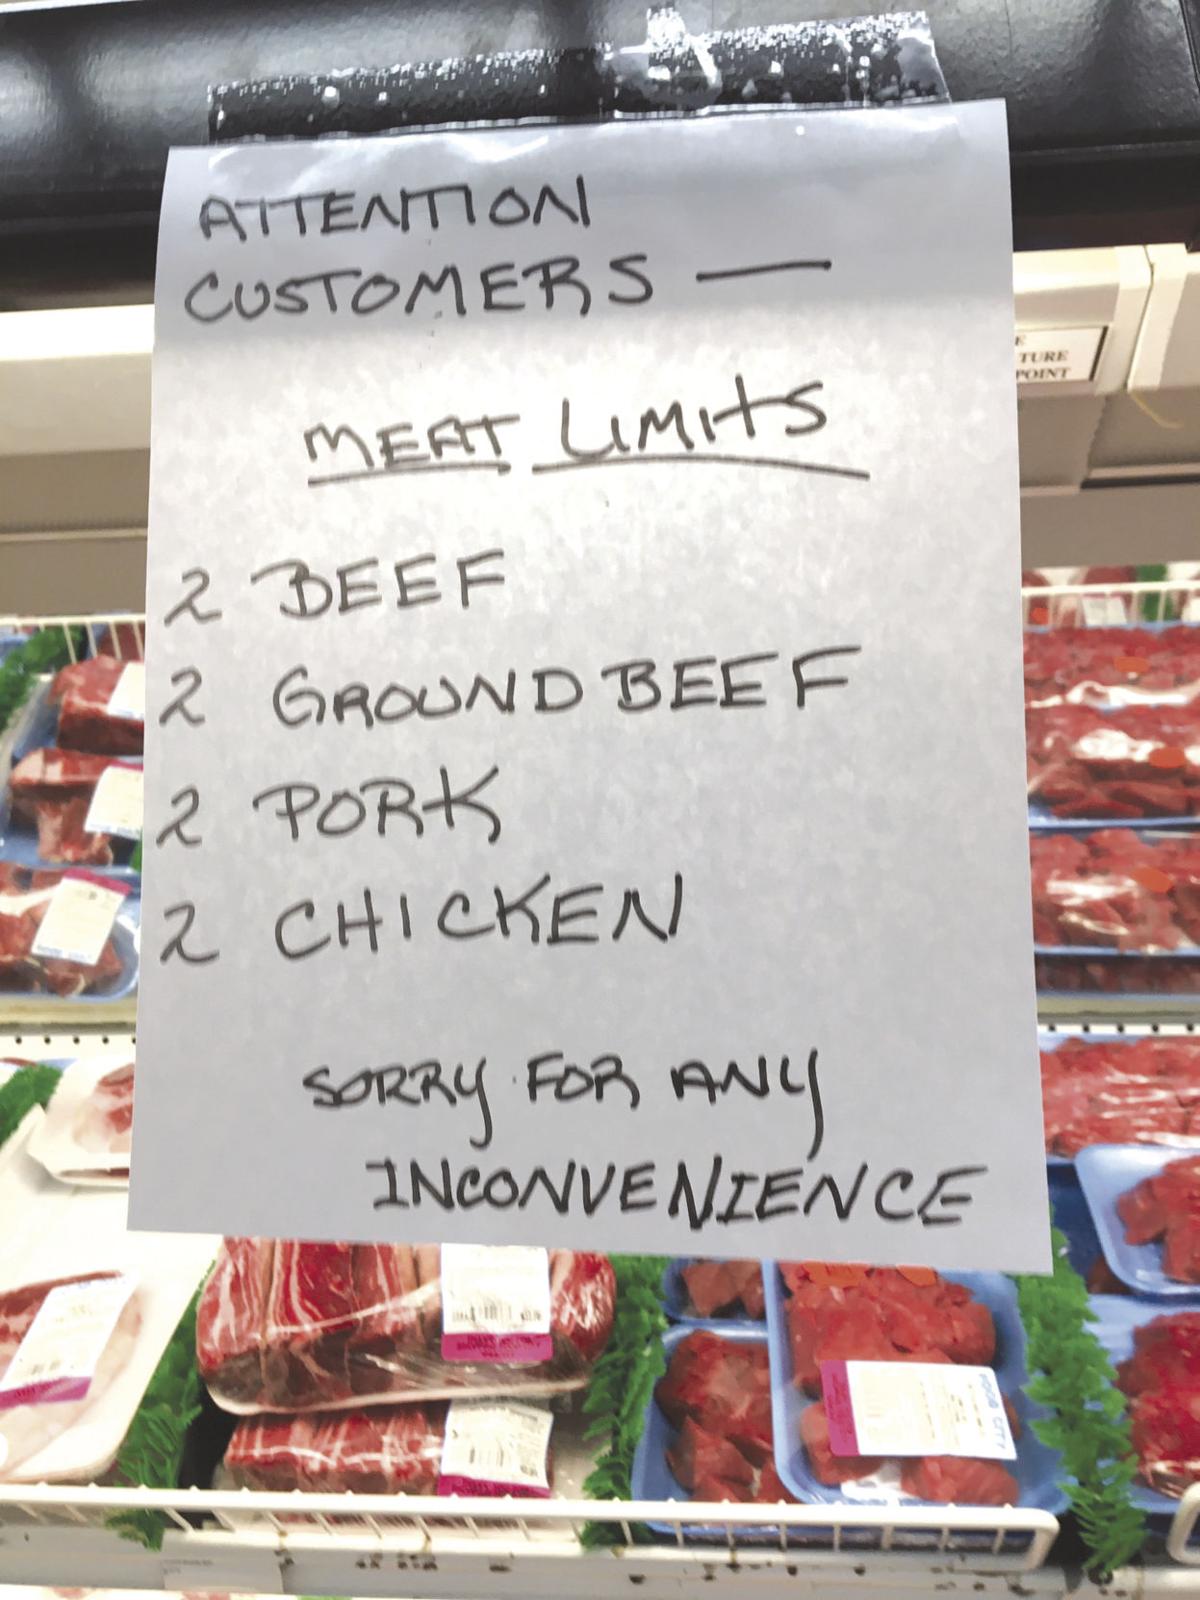 ATTENTION
CUSTOMERS —
MEAT LIMITS
2 BEEF
2 GROUND BEEF
2 PORK
2 CHICKEN
SORRY FOR ANY
INCONVENIENCE
E
TURE
POINT
FOOD CITY